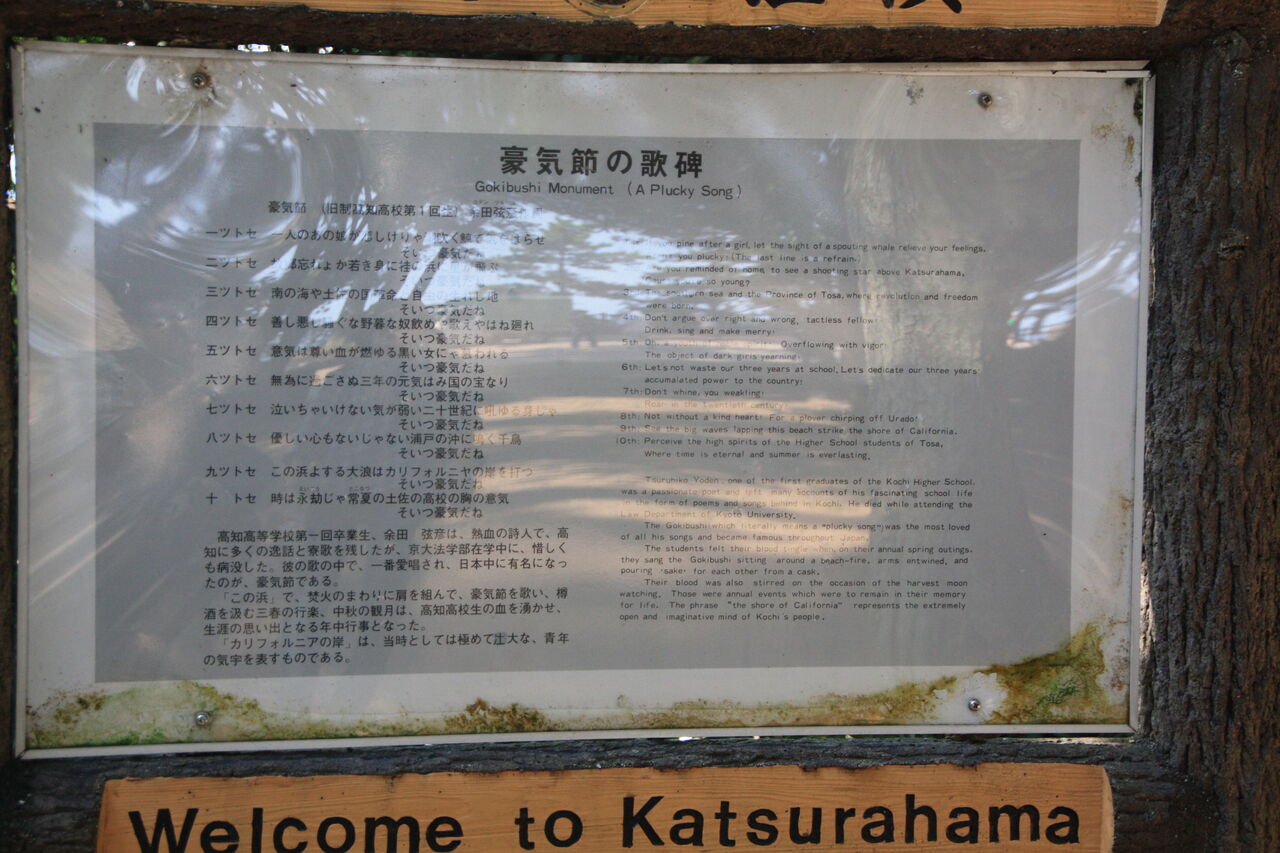 豪気節の歌碑
Gokibushi Monument (A Plucky Song)
豪気節 (旧制高知高校第1回生) 余田弦彦
一ツトセ 一人のあの娘が
そいつ豪気だね
二ツトセ 忘れよか若き身に
三ツトセ 南の海や土佐の国
そいつ豪気だね
四ツトセ 善し悪し 野暮な奴飲めや歌えやはね廻れ
そいつ豪気だね
五ツトセ 意気は尊い血が燃ゆる黒い女にゃ
そいつ豪気だね
六ツトセ 無為に過ごさぬ三年の元気はみ国の宝なり
そいつ豪気だね
七ツトセ 泣いちゃいけない気が弱い二十世紀に吼ゆる身じゃ
そいつ豪気だね
八ツトセ 優しい心もないじゃない浦戸の沖に鳴く千鳥
そいつ豪気だね
九ツトセ この浜よする大浪はカリフォルニヤの岸を打つ
そいつ豪気だね
十 トセ 時は永劫じゃ常夏の土佐の高校の胸の意気
そいつ豪気だね
高知高等学校第一回卒業生、余田 弦彦は、熱血の詩人で、高
知に多くの逸話と寮歌を残したが、京大法学部在学中に、惜しく
も病没した。彼の歌の中で、一番愛唱され、日本中に有名になっ
たのが、豪気節である。
「この浜」で、焚火のまわりに肩を組んで、豪気節を歌い、樽
酒を汲む三春の行楽、中秋の観月は、高知高校生の血を湧かせ、
生涯の思い出となる年中行事となった。
「カリフォルニアの岸」は、当時としては極めて壮大な、青年
の気宇を表すものである。
pine after a girl, let the sight of a spouting whale relieve your feelings.
you plucky! (The last line is a refrain.)
you reminded of home, to see a shooting star above Katsurahama,
so young?
sea and the Province of Tosa, where revolution and freedom
were born.
4th: Don't argue over right and wrong, tactless fellow!
Drink, sing and make merry!
5th: Oh, Overflowing with vigor!
The object of dark girls yearning!
6th: Let's not waste our three years at school. Let's dedicate our three years'
accumulated power to the country!
7th: Don't whine, you weakling!
Roar in the Twentieth century.
8th: Not without a kind heart! For a plover chirping off Urado!
9th: See the big waves lapping this beach strike the shore of California.
10th: Perceive the high spirits of the Higher School students of Tosa,
Where time is eternal and summer is everlasting.
Tsuruhiko Yoden, one of the first graduates of the Kochi Higher School,
was a passionate poet and left many accounts of his fascinating school life
in the form of poems and songs behind in Kochi. He died while attending the
Law Department of Kyoto University.
The Gokibushi(which literally means a "plucky song") was the most loved
of all his songs and became famous throughout Japan.
The students felt their blood tingle when, on their annual spring outings,
they sang the Gokibushi sitting around a beach-fire, arms entwined, and
pouring "sake" for each other from a cask.
Their blood was also stirred on the occasion of the harvest moon
watching. Those were annual events which were to remain in their memory
for life. The phrase "the shore of California" represents the extremely
open and imaginative mind of Kochi's people.
Welcome to Katsurahama